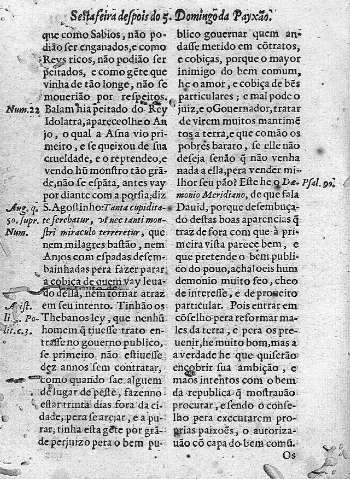 Sestafeira despois do 5. Domingo da Payxão.
que como Sabios, não po-
dião ser enganados, e como
Reys ricos, não podião ser
peitados, e como gẽte que
vinha de tão longe, não se
mouerião por respeitos.
Num. 22
Balam hia peitado do Rey
Idolatra, apareceolhe o An-
jo, o qual a Asna vio pri-
meiro, e se queixou de sua
crueldade, e o reprendeo, e
vendo hũ monstro tão grã-
de, não se espãta, antes vay
por diante com a porfia; diz
Aug. q.
50. supr.
Num.
S. Agostinho: Tanta cupidita-
te ferebatur, ut nec tanti mon-
stri miraculo terreretur, que
nem milagres bastão, nem
Anjos com espadas desem-
bainhadas pera fazer parar
a cobiça de quem vay leua-
do della, nem tornar atraz
em seu intento. Tinhão os
Arist.
li. 3. Po-
lit. c. 3.
Thebanos ley, que nenhũ
homem q̃ tiuesse trato en-
trasse no governo publico,
se primeiro não estiuesse
dez annos sem contratar,
como quando sae alguem
de lugar de peste, fazenno
estar trinta dias fora da ci-
dade, pera se arçar, e a pu-
rar, tinha esta gẽte por grã-
de perjuizo pera o bem pu-
blico governar quem an-
dasse metido em cõtratos,
e cobiças, porque o mayor
inimigo do bem comum,
he o amor, e cobiça de bẽs
particulares; e mal pode o
juiz, e o Governador, tratar
de virem muitos mantimẽ-
tos a terra, e que comão os
pobres barato, se elle não
deseja senão q̃ não venha
nada a ella, pera vender mi-
lhor seu pão? Este he o Dæ-
monio Meridiano, de que fala
Psal. 90.
Dauid, porque desembuça-
do destas boas aparencias q̃
traz de fora com que à pri-
meira vista parece bem, e
que pretende o bem publi-
co do pouo, achaloeis hum
demonio muito feo, cheo
de interesse, e de proueito
particular. Pois entrar em
cõselho pera reformar ma-
les da terra, e pera os pre-
uenir, he muito bom, mas a
verdade he que quiserão
encobrir sua ambição, e
maos intentos com o bem
da republica q̃ mostrauão
procurar, e sendo o conse-
lho pera executarem pro-
prias paixoẽs, o autoriza-
uão cõ capa do bem comũ.
Os